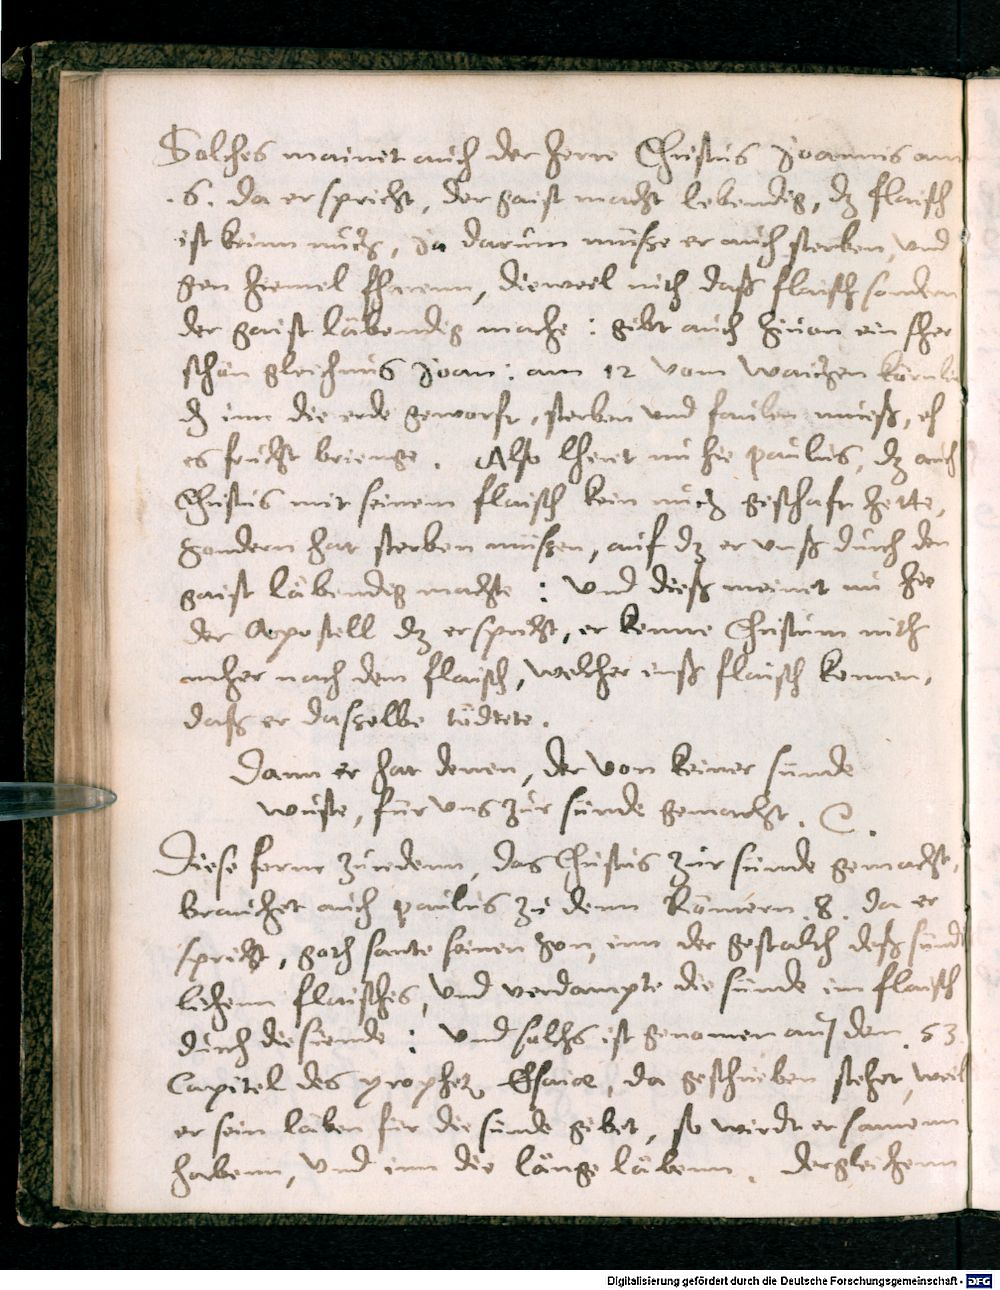 Solches mainet auch der herre Christus Joannis am
.6. da er spricht, der gaist macht lebendig, dz flaisch
ist keinn nutz, Ja darum musße er auch sterben, und
gen hiemel fharenn, dieweil nith daß flaisch sondern
der gaist läbendig mache : gibt auch hiuon ein sher
schön gleichnus Joan : am 12 vom waitzen körnli
dz inn die erde geworfe, sterben und faulen mueß, eh
es frucht brienge . Also lheret nu hie paulus, dz auch
Christus mit seinem flaisch kein nutz geschaft hette,
sondern hat sterben müsßen, auf dz er unß durch den
gaist läbendig machte : und dieß meinet nu hie
der Appostell dz er spricht, er kenne Christum nith
mher nach dem flaisch, welcher inß flaisch komen,
daß er dasselbe tödtete .
Dann er hat denen, der von keiner sunde
wuste, fur uns zur sunde gemacht . C .
Diese form zu redenn, das Christus zur sunde gemacht,
brauchet auch paulus zu denn Römern .8. da er
spricht, goth sante seinen son, inn der gestalth deß sündt
lichenn flaisches, und verdampte die sunde im flaisch
durch die suende : und solchs ist genomen aus dem .53
Capitel des prophetz Esaiae, da geschrieben stehet, weil
er sein läben für die sünde gibet, so wirdt er samenn
habenn, und inn die länge läbenn . dergleichenn
Digitalisierung gefördert durch die Deutsche Forschungsgemeinschaft - DFG